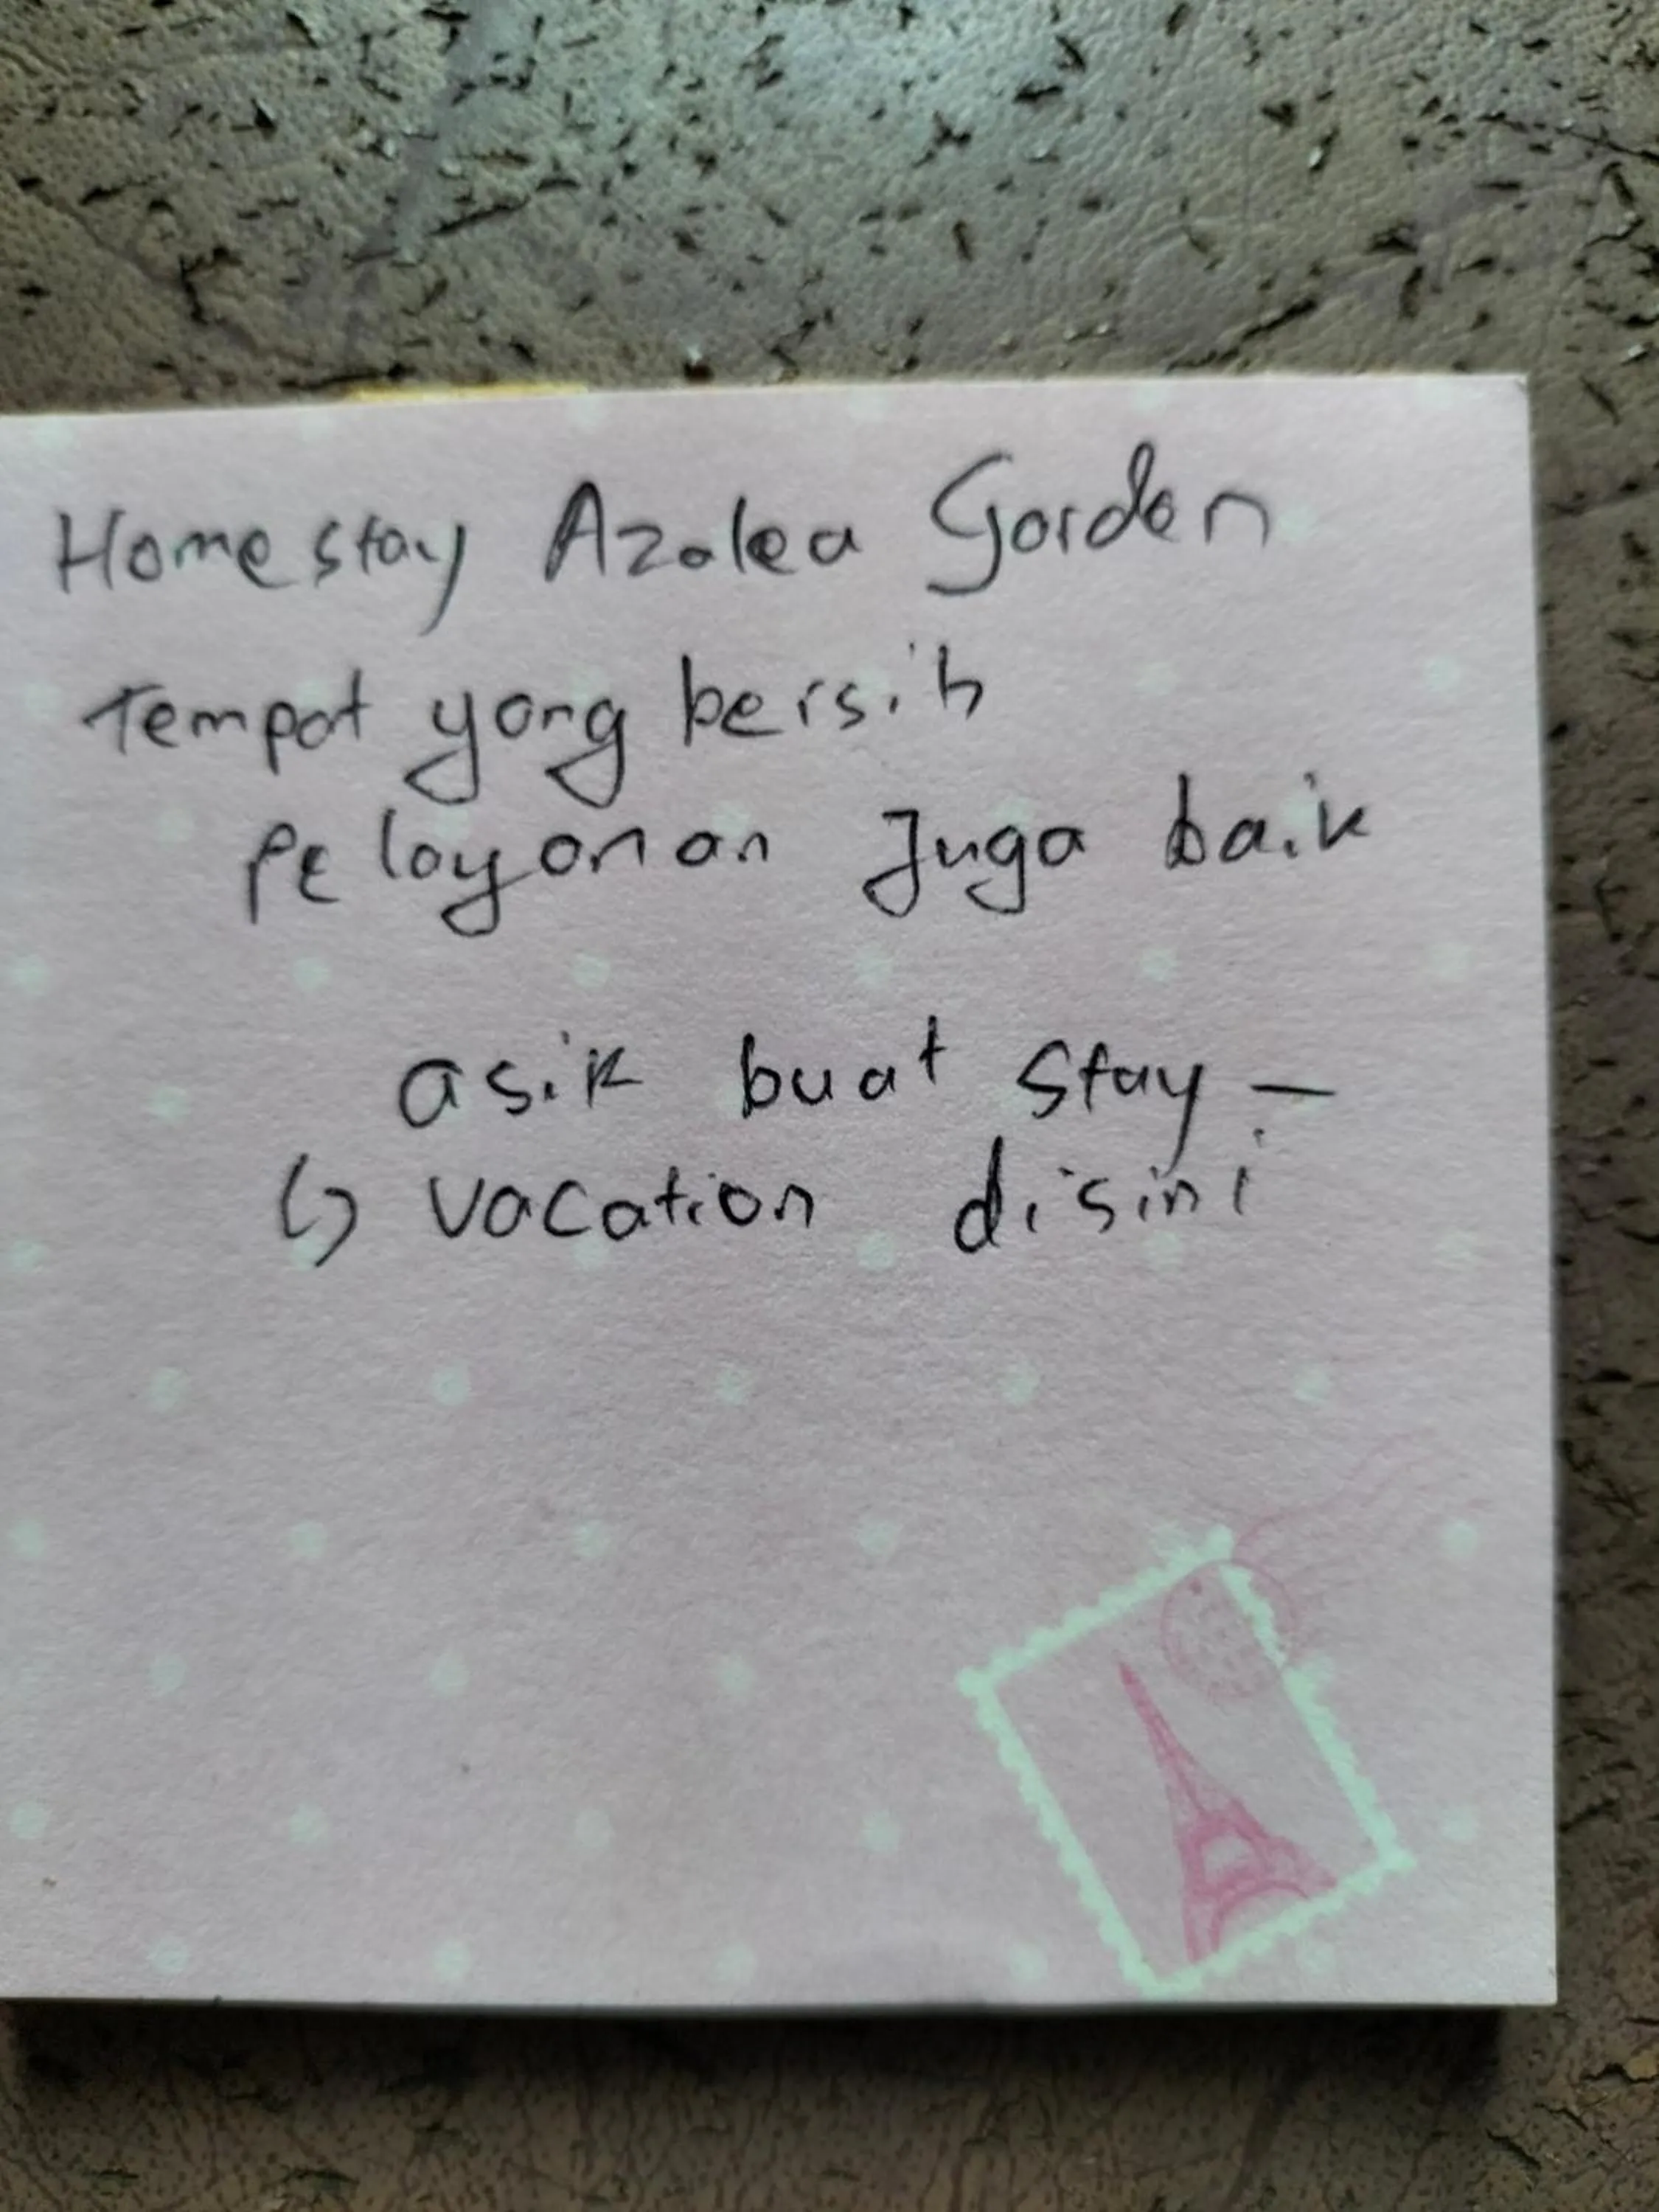 Homestay Azalea Garden
Tempat yang bersih
pelayanan Juga baik
asik buat stay –
↳ vacation disini